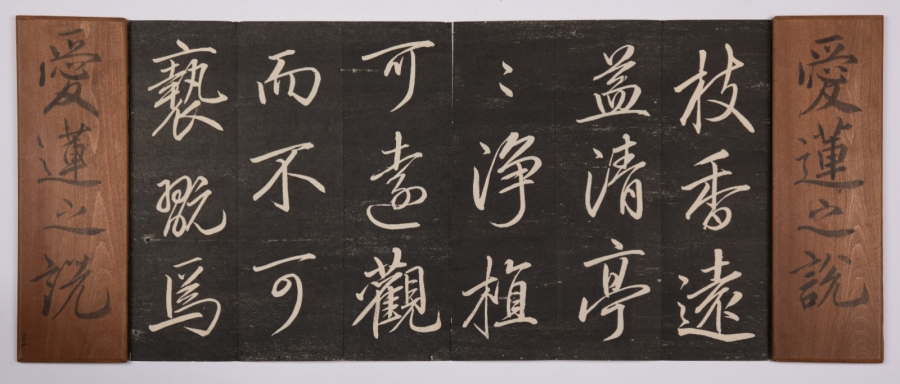 愛蓮之説
枝香遠
益清亭
〻浄植
可遠觀
而不可
褻翫焉
愛蓮之説